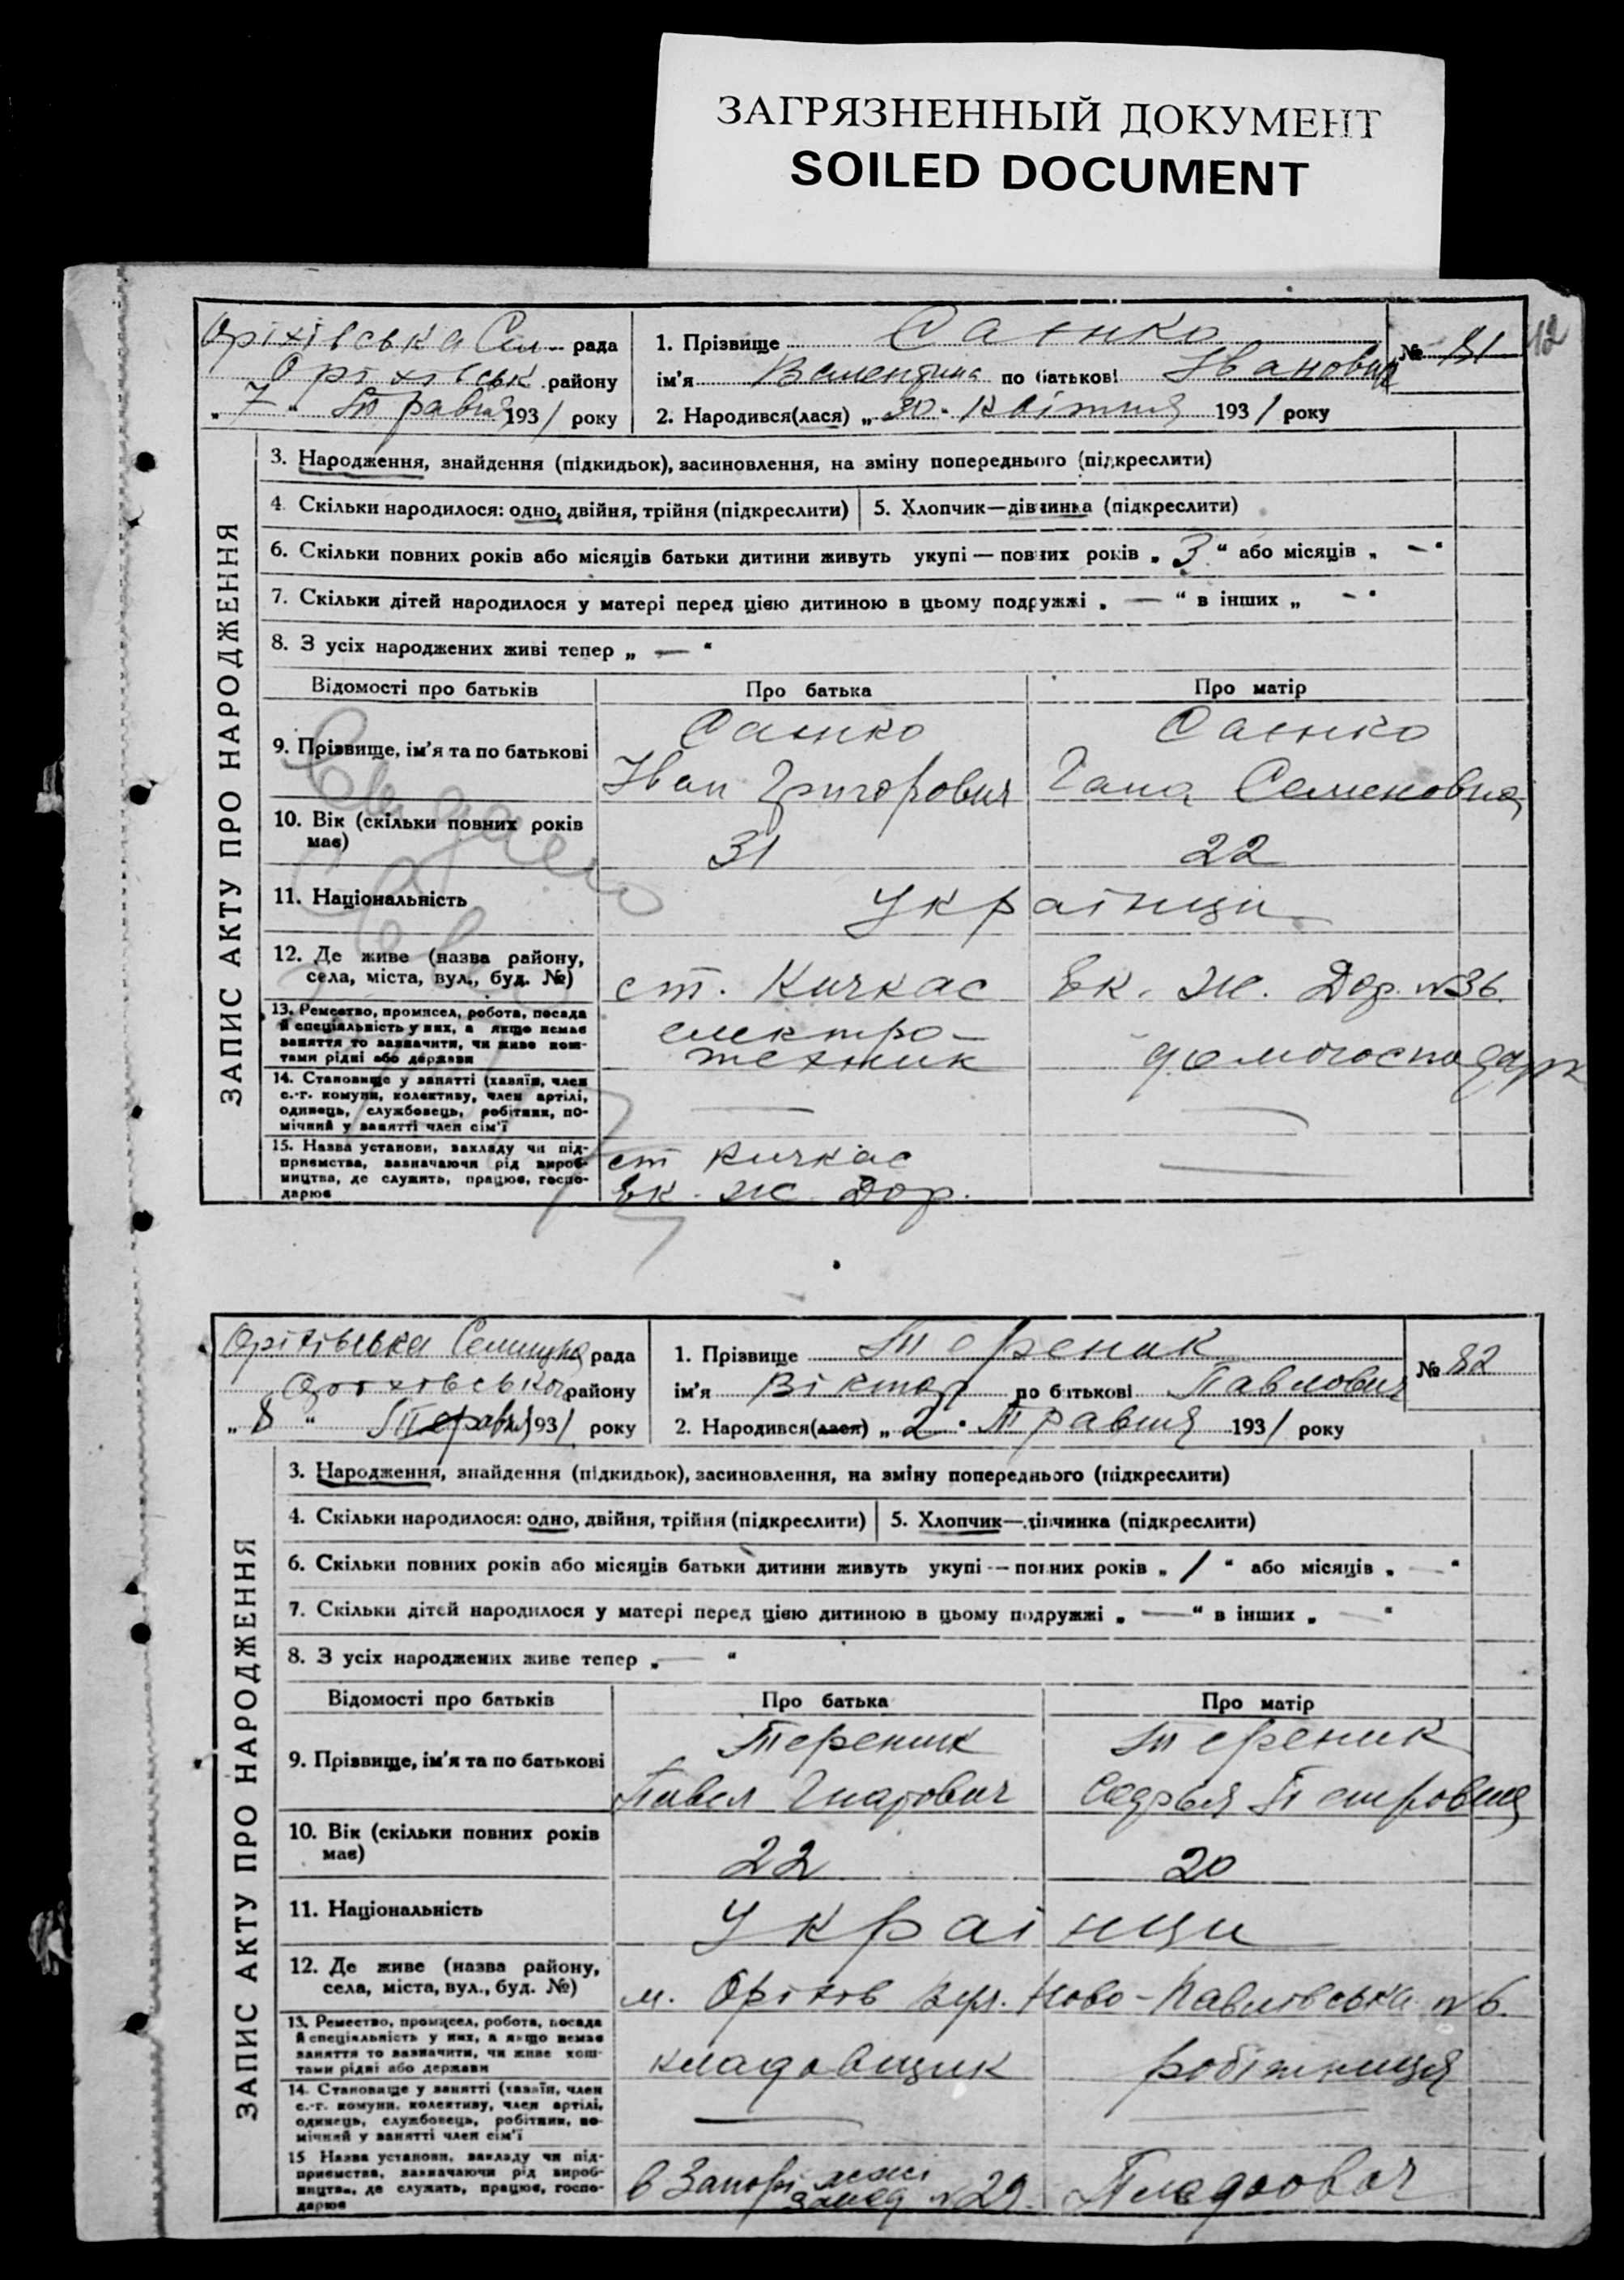 ЗАГРЯЗНЕННЫЙ ДОКУМЕНТ
SOILED DOCUMENT
12
ЗАПИС АКТУ ПРО НАРОДЖЕННЯ
Оріхівська Сел рада
Оріхівськ району
„ 7 “ Травня 1931 року
1. Прізвище Саєнко
№ 81
ім'я Валентина по батькові Івановна
2. Народився(лася) „ 30 “ Квітня 1931 року
3. Народження, знайдення (підкидьок), засиновлення, на зміну попереднього (підкреслити)
4. Скільки народилося: одно, двійня, трійня (підкреслити)
5. Хлопчик—дівчинка (підкреслити)
6. Скільки повних років або місяців батьки дитини живуть укупі — повних років „ 3 “ або місяців „ — “
7. Скільки дітей народилося у матері перед цією дитиною в цьому подружжі „ — “ в інших „ — “
8. З усіх народжених живі тепер „ — “
Відомості про батьків
Про батька
Про матір
9. Прізвище, ім'я та по батькові
Саєнко
Іван Григорович
Саєнко
Гана Семеновна
10. Вік (скільки повних років має)
31
22
11. Національність
Українці
12. Де живе (назва району,
села, міста, вул., буд. №)
ст. Кичкас Єк. Ж. Дор. №36.
13. Ремество, промисел, робота, посада
й спеціальність у них, а якщо немає
заняття то зазначити, чи живе кош-
тами рідні або держави
електро-
техник
домогосподарк
14. Становище у занятті (хазяїн, член
с.-г. комуни, колективу, член артілі,
одинець, службовець, робітник, по-
мічний у занятті член сім'ї
—
—
15. Назва установи, закладу чи під-
приємства, зазначаючи рід вироб-
ництва, де служить, працює, госпо-
дарює
ст Кичкас
Єк. Ж. Дор.
—
ЗАПИС АКТУ ПРО НАРОДЖЕННЯ
Оріхівська Селищна рада
Оріхівського району
„ 8 “ Травня 1931 року
1. Прізвище Тереник
№ 82
ім'я Віктор по батькові Павлович
2. Народився(лася) „ 2 “ Травня 1931 року
3. Народження, знайдення (підкидьок), засиновлення, на зміну попереднього (підкреслити)
4. Скільки народилося: одно, двійня, трійня (підкреслити)
5. Хлопчик—дівчинка (підкреслити)
6. Скільки повних років або місяців батьки дитини живуть укупі — повних років „ 1 “ або місяців „ — “
7. Скільки дітей народилося у матері перед цією дитиною в цьому подружжі „ — “ в інших „ — “
8. З усіх народжених живе тепер „ — “
Відомості про батьків
Про батька
Про матір
9. Прізвище, ім'я та по батькові
Тереник
Павел Гнатович
Тереник
Петровна
10. Вік (скільки повних років має)
22
20
11. Національність
Українци
12. Де живе (назва району,
села, міста, вул., буд. №)
м. Оріхів вул. Ново-Павлівська №6.
13. Ремество, промисел, робота, посада
й спеціальність у них, а якщо немає
заняття то зазначити, чи живе кош-
тами рідні або держави
кладовщик
робітниця
14. Становище у занятті (хазяїн, член
с.-г. комуни, колективу, член артілі,
одинець, службовець, робітник, по-
мічний у занятті член сім'ї
—
—
15 Назва установи, закладу чи під-
приємства, зазначаючи рід вироб-
ництва, де служить, працює, госпо-
дарює
в Запоріжжі
завод №29.